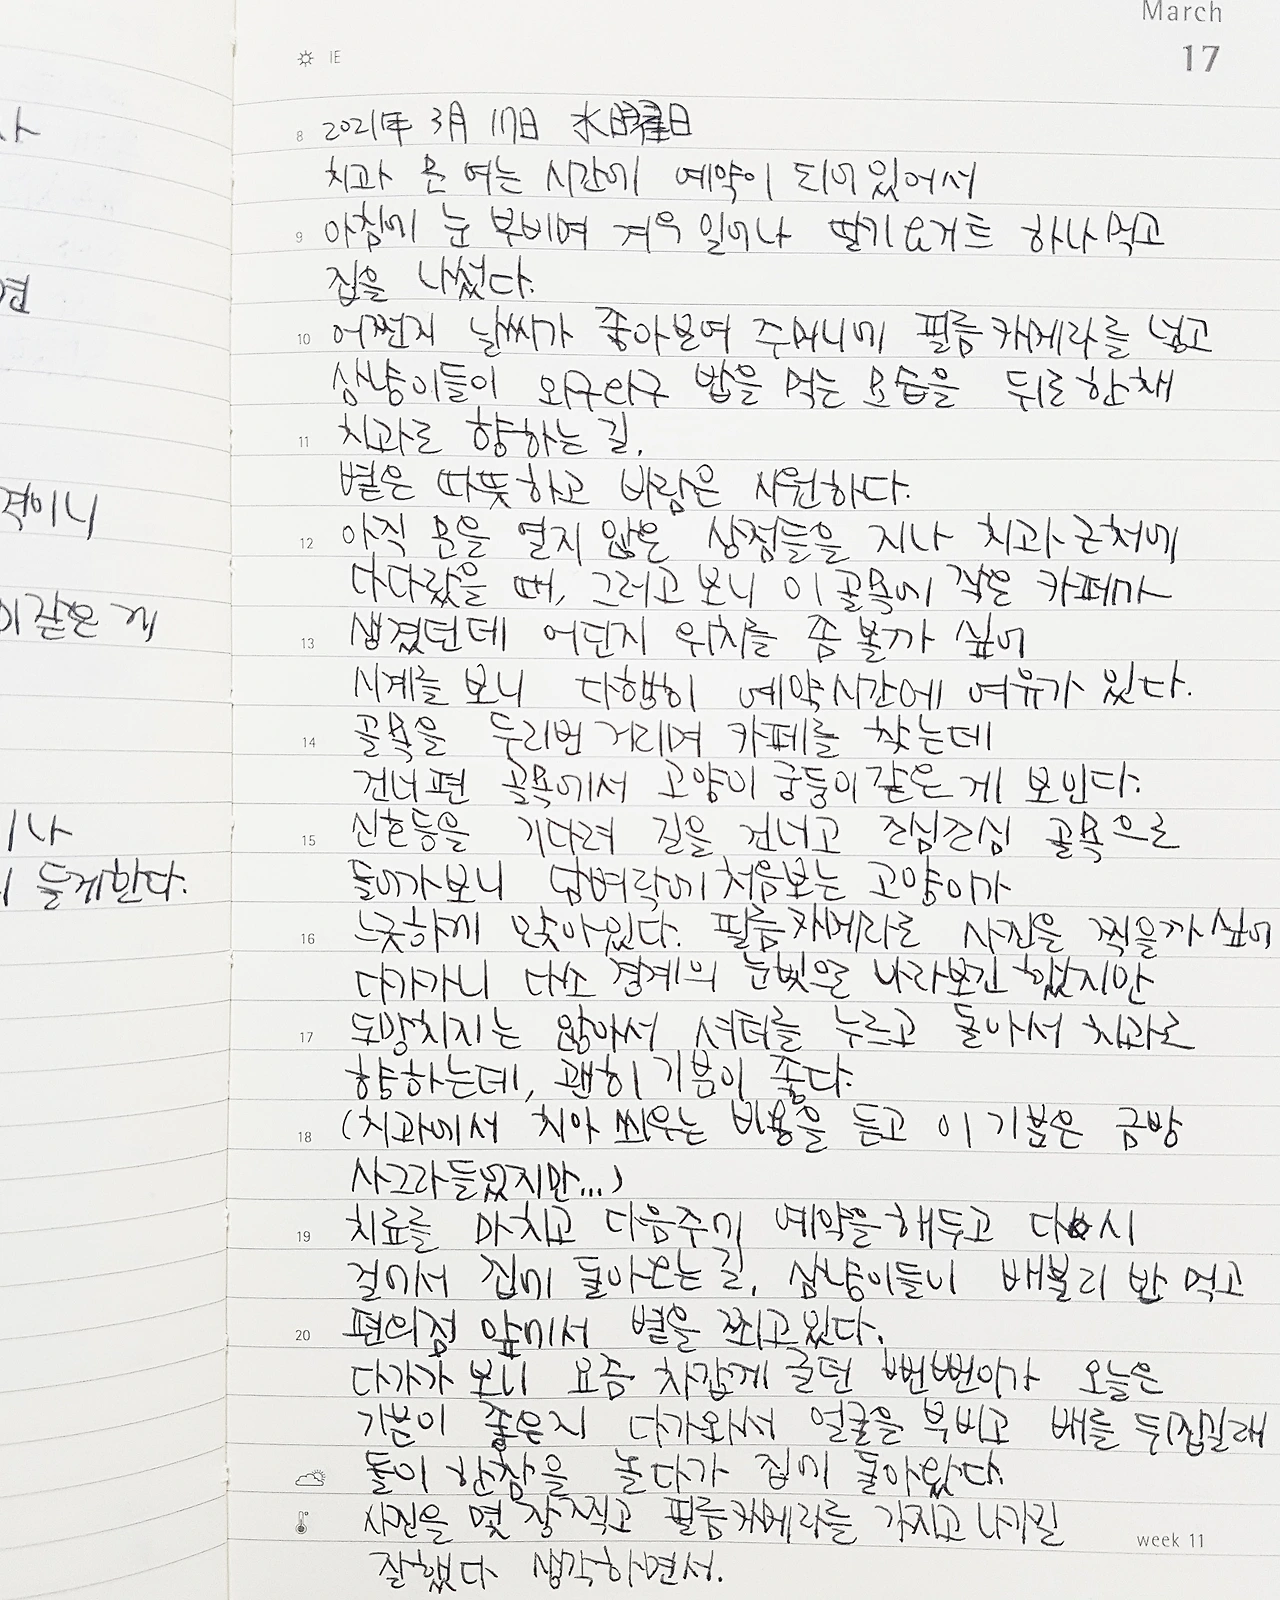 March
17
IE
사
면
격이니
이 같은 게
이나
이 들게한다.
8 2021年 3月 17日 水曜日
치과 문 여는 시간에 예약이 되어 있어서
9 아침에 눈 부비며 겨우 일어나 딸기요거트 하나 먹고
집을 나섰다.
10 어쩐지 날씨가 좋아보여 주머니에 필름카메라를 넣고
삼냥이들이 와구와구 밥을 먹는 모습을 뒤로한채
11 치과로 향하는 길.
볕은 따뜻하고 바람은 시원하다.
12 아직 문을 열지 않은 상점들을 지나 치과 근처에
다다랐을 때, 그러고보니 이 골목에 작은 카페가
13 생겼던데 어딘지 위치를 좀 볼까 싶어
시계를 보니 다행히 예약시간에 여유가 있다.
14 골목을 두리번 거리며 카페를 찾는데
건너편 골목에서 고양이 궁둥이 같은 게 보인다.
15 신호등을 기다려 길을 건너고 조심조심 골목으로
들어가보니 담벼락에 처음보는 고양이가
16 느긋하게 앉아있다. 필름카메라로 사진을 찍을까 싶어
다가가니 다소 경계의 눈빛으로 바라보긴 했지만
17 도망치지는 않아서 셔터를 누르고 돌아서 치과로
향하는데, 괜히 기분이 좋다.
18 (치과에서 치아 씌우는 비용을 듣고 이 기분은 금방
사그라들었지만...)
19 치료를 마치고 다음주에 예약을 해두고 다시
걸어서 집에 돌아오는 길, 삼냥이들이 배불리 밥 먹고
20 편의점 앞에서 볕을 쬐고 있다.
다가가 보니 요즘 차갑게 굴던 뻔뻔이가 오늘은
기분이 좋은지 다가와서 얼굴을 부비고 배를 뒤집길래
둘이 한참을 놀다가 집에 돌아왔다.
사진을 몇 장 찍고 필름카메라를 가지고 나가길
week 11
잘했다 생각하면서.